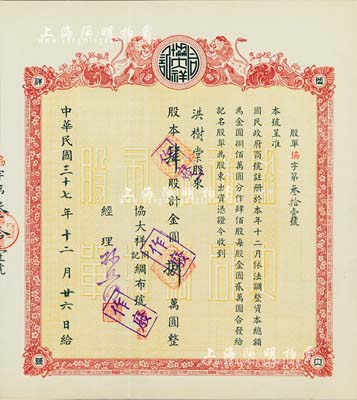 股單協字第叁拾壹號
本號呈准
國民政府商號註冊於本年十二月依法調整資本總額
為金圓捌佰萬圓分作肆佰股每股金圓貳萬圓合發給
記名股單為股東出資憑證今收到
洪樹棠股東
股本肆股計金圓捌萬圓整
協大祥
記綢布號
經理
中華民國三十七年十二月廿六日給
作廢
作廢
上海陽明拍賣